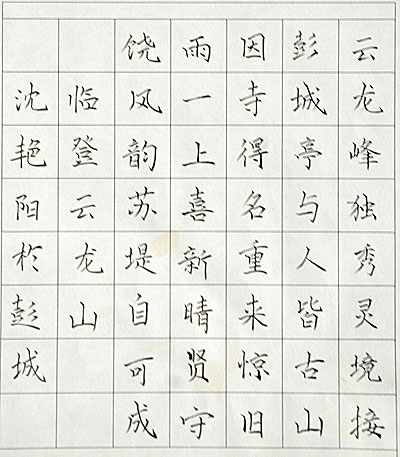 云龙峰独秀灵境接
彭城亭与人皆古山
因寺得名重来惊旧
雨一上喜新晴贤守
饶风韵苏堤自可成
临登云龙山
沈艳阳於彭城